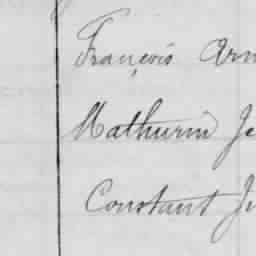 François Arm
Mathurin Je
Constant Ju